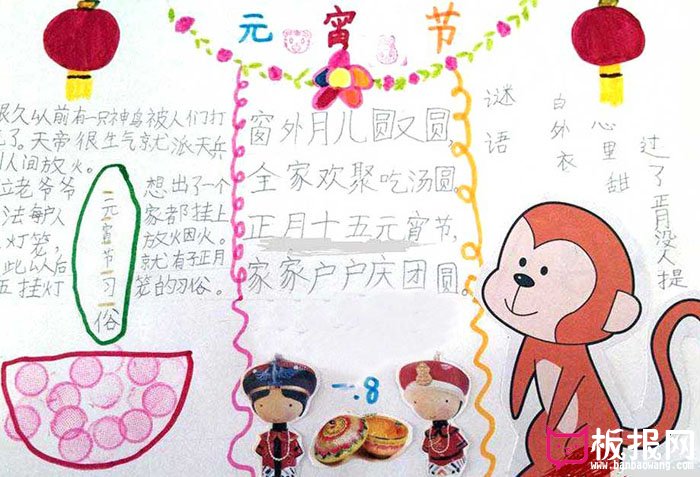 元 宵 节
很久以前有一只神鸟被人们打
了。天帝很生气就派天兵
人间放火。
位老爷爷 想出了一个
法每户人 家都挂上
灯笼， 放火因火。
此以后 就有了正月
五挂灯 笼的习俗。
元宵节习俗
窗外月儿圆又圆，
全家欢聚吃汤圆。
正月十五元宵节，
家家户户庆团圆。
一.8
谜语
白外衣
心里甜
过了正月没人提
板报网
www.banbaowang.com